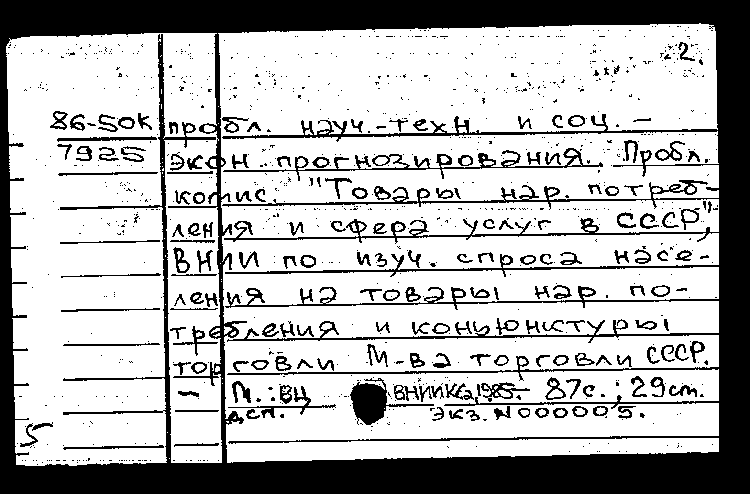 2.
86-50К пробл. науч.-техн. и соц. -
7925 экон. прогнозирования. Пробл.
комис. "Товары нар. потреб-
ления и сфера услуг в СССР",
ВНИИ по изуч. спроса насе-
ления на товары нар. по-
требления и коньюнктуры
торговли М-ва торговли СССР.
- М.: ВЦ ВНИИКС, 1985. - 87с.; 29см.
дсп. экз. N000005.
5